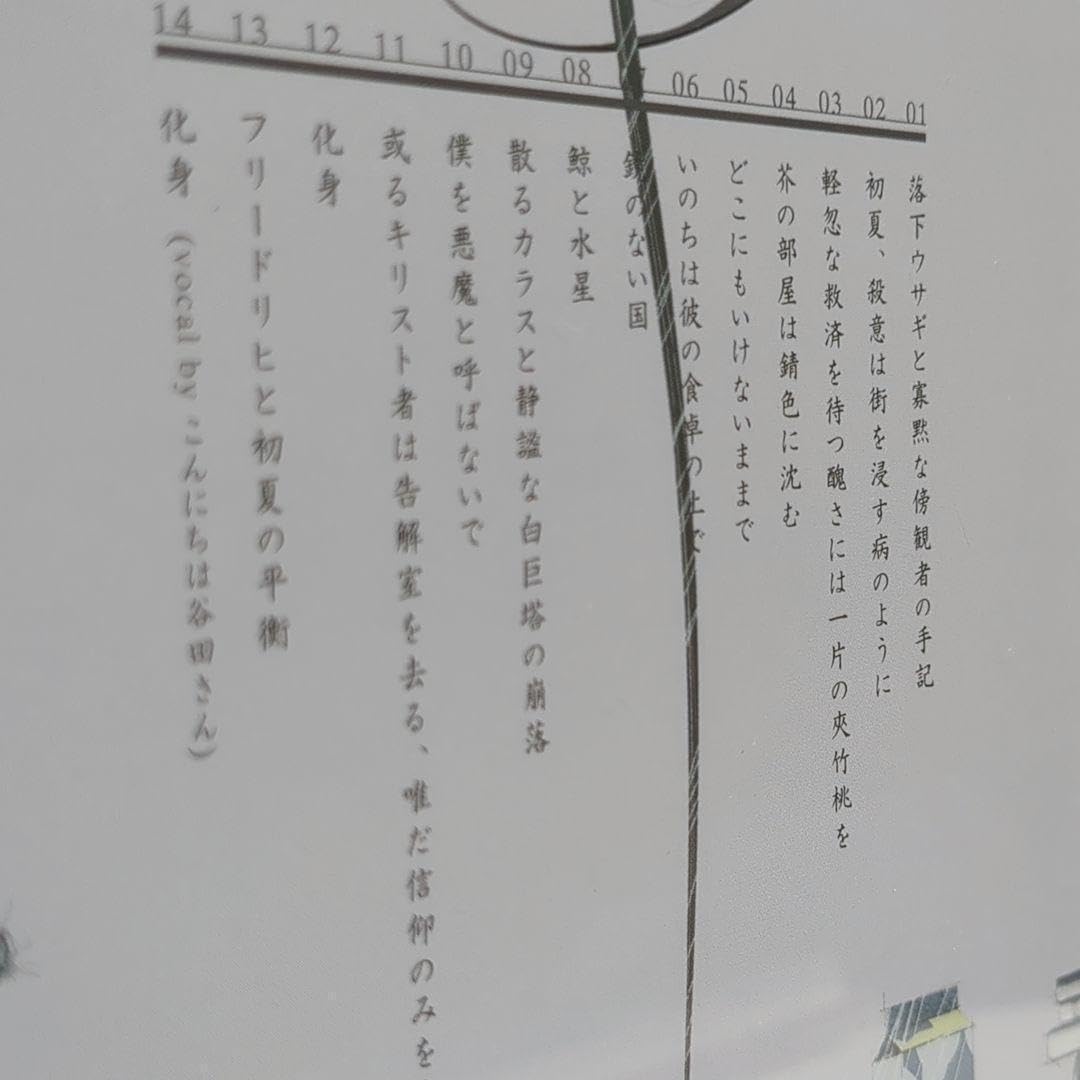 01 落下ウサギと寡黙な傍観者の手記
02 初夏、殺意は街を浸す病のように
03 軽忽な救済を待つ醜さには一片の夾竹桃を
04 芥の部屋は錆色に沈む
05 どこにもいけないままで
06 いのちは彼の食卓の上で
のない国
08 鯨と水星
09 散るカラスと静謐な白巨塔の崩落
10 僕を悪魔と呼ばないで
11 或るキリスト者は告解室を去る、唯だ信仰のみを
12 化身
13 フリードリヒと初夏の平衡
14 化身 (vocal by こんにちは谷田さん)